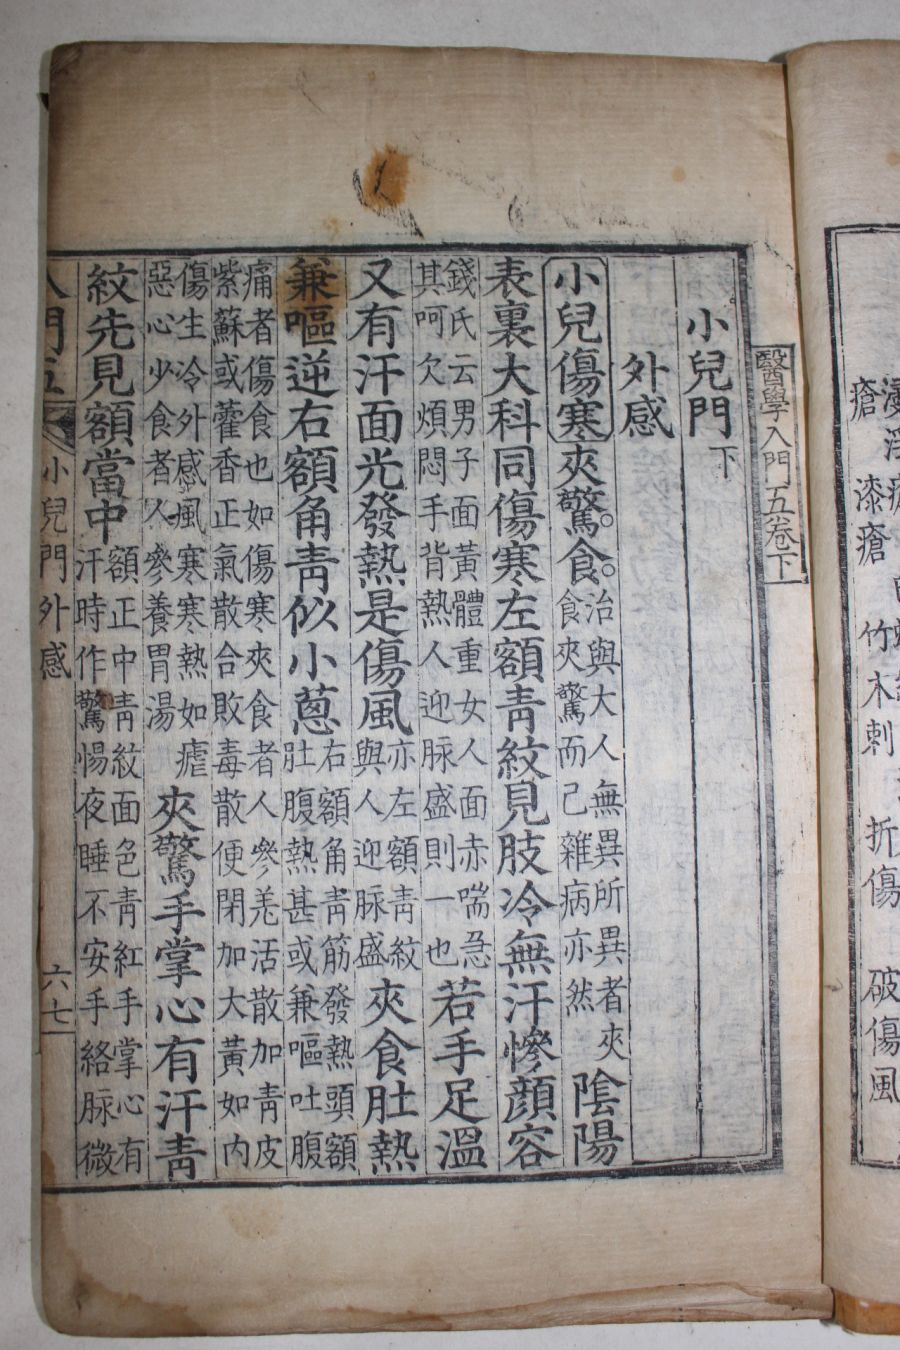 瘡 漆瘡 竹木刺 折傷 破傷風
醫學入門 五卷下
小兒門下
外感
小兒傷寒夾驚食治與大人無異所異者夾食夾驚而已雜病亦然陰陽
表裏大科同傷寒左額靑紋見肢冷無汗慘顔容
錢氏云男子面黃體重女人面赤喘急其呵欠煩悶手背熱人迎脉盛則一也若手足溫
又有汗面光發熱是傷風亦左額靑紋與人迎脉盛夾食肚熱
兼嘔逆右額角靑似小蔥右額角靑筋發熱頭額肚腹熱甚或兼嘔吐腹
痛者傷食也如傷寒夾食者人參羌活散加靑皮
紫蘇或藿香正氣散合敗毒散便閉加大黃如內
傷生冷外感風寒寒熱如瘧惡心少食者人參養胃湯夾驚手掌心有汗靑
紋先見額當中額正中靑紋面色靑紅手掌心有汗時作驚惕夜睡不安手絡脉微
入門五 小兒門外感 六七